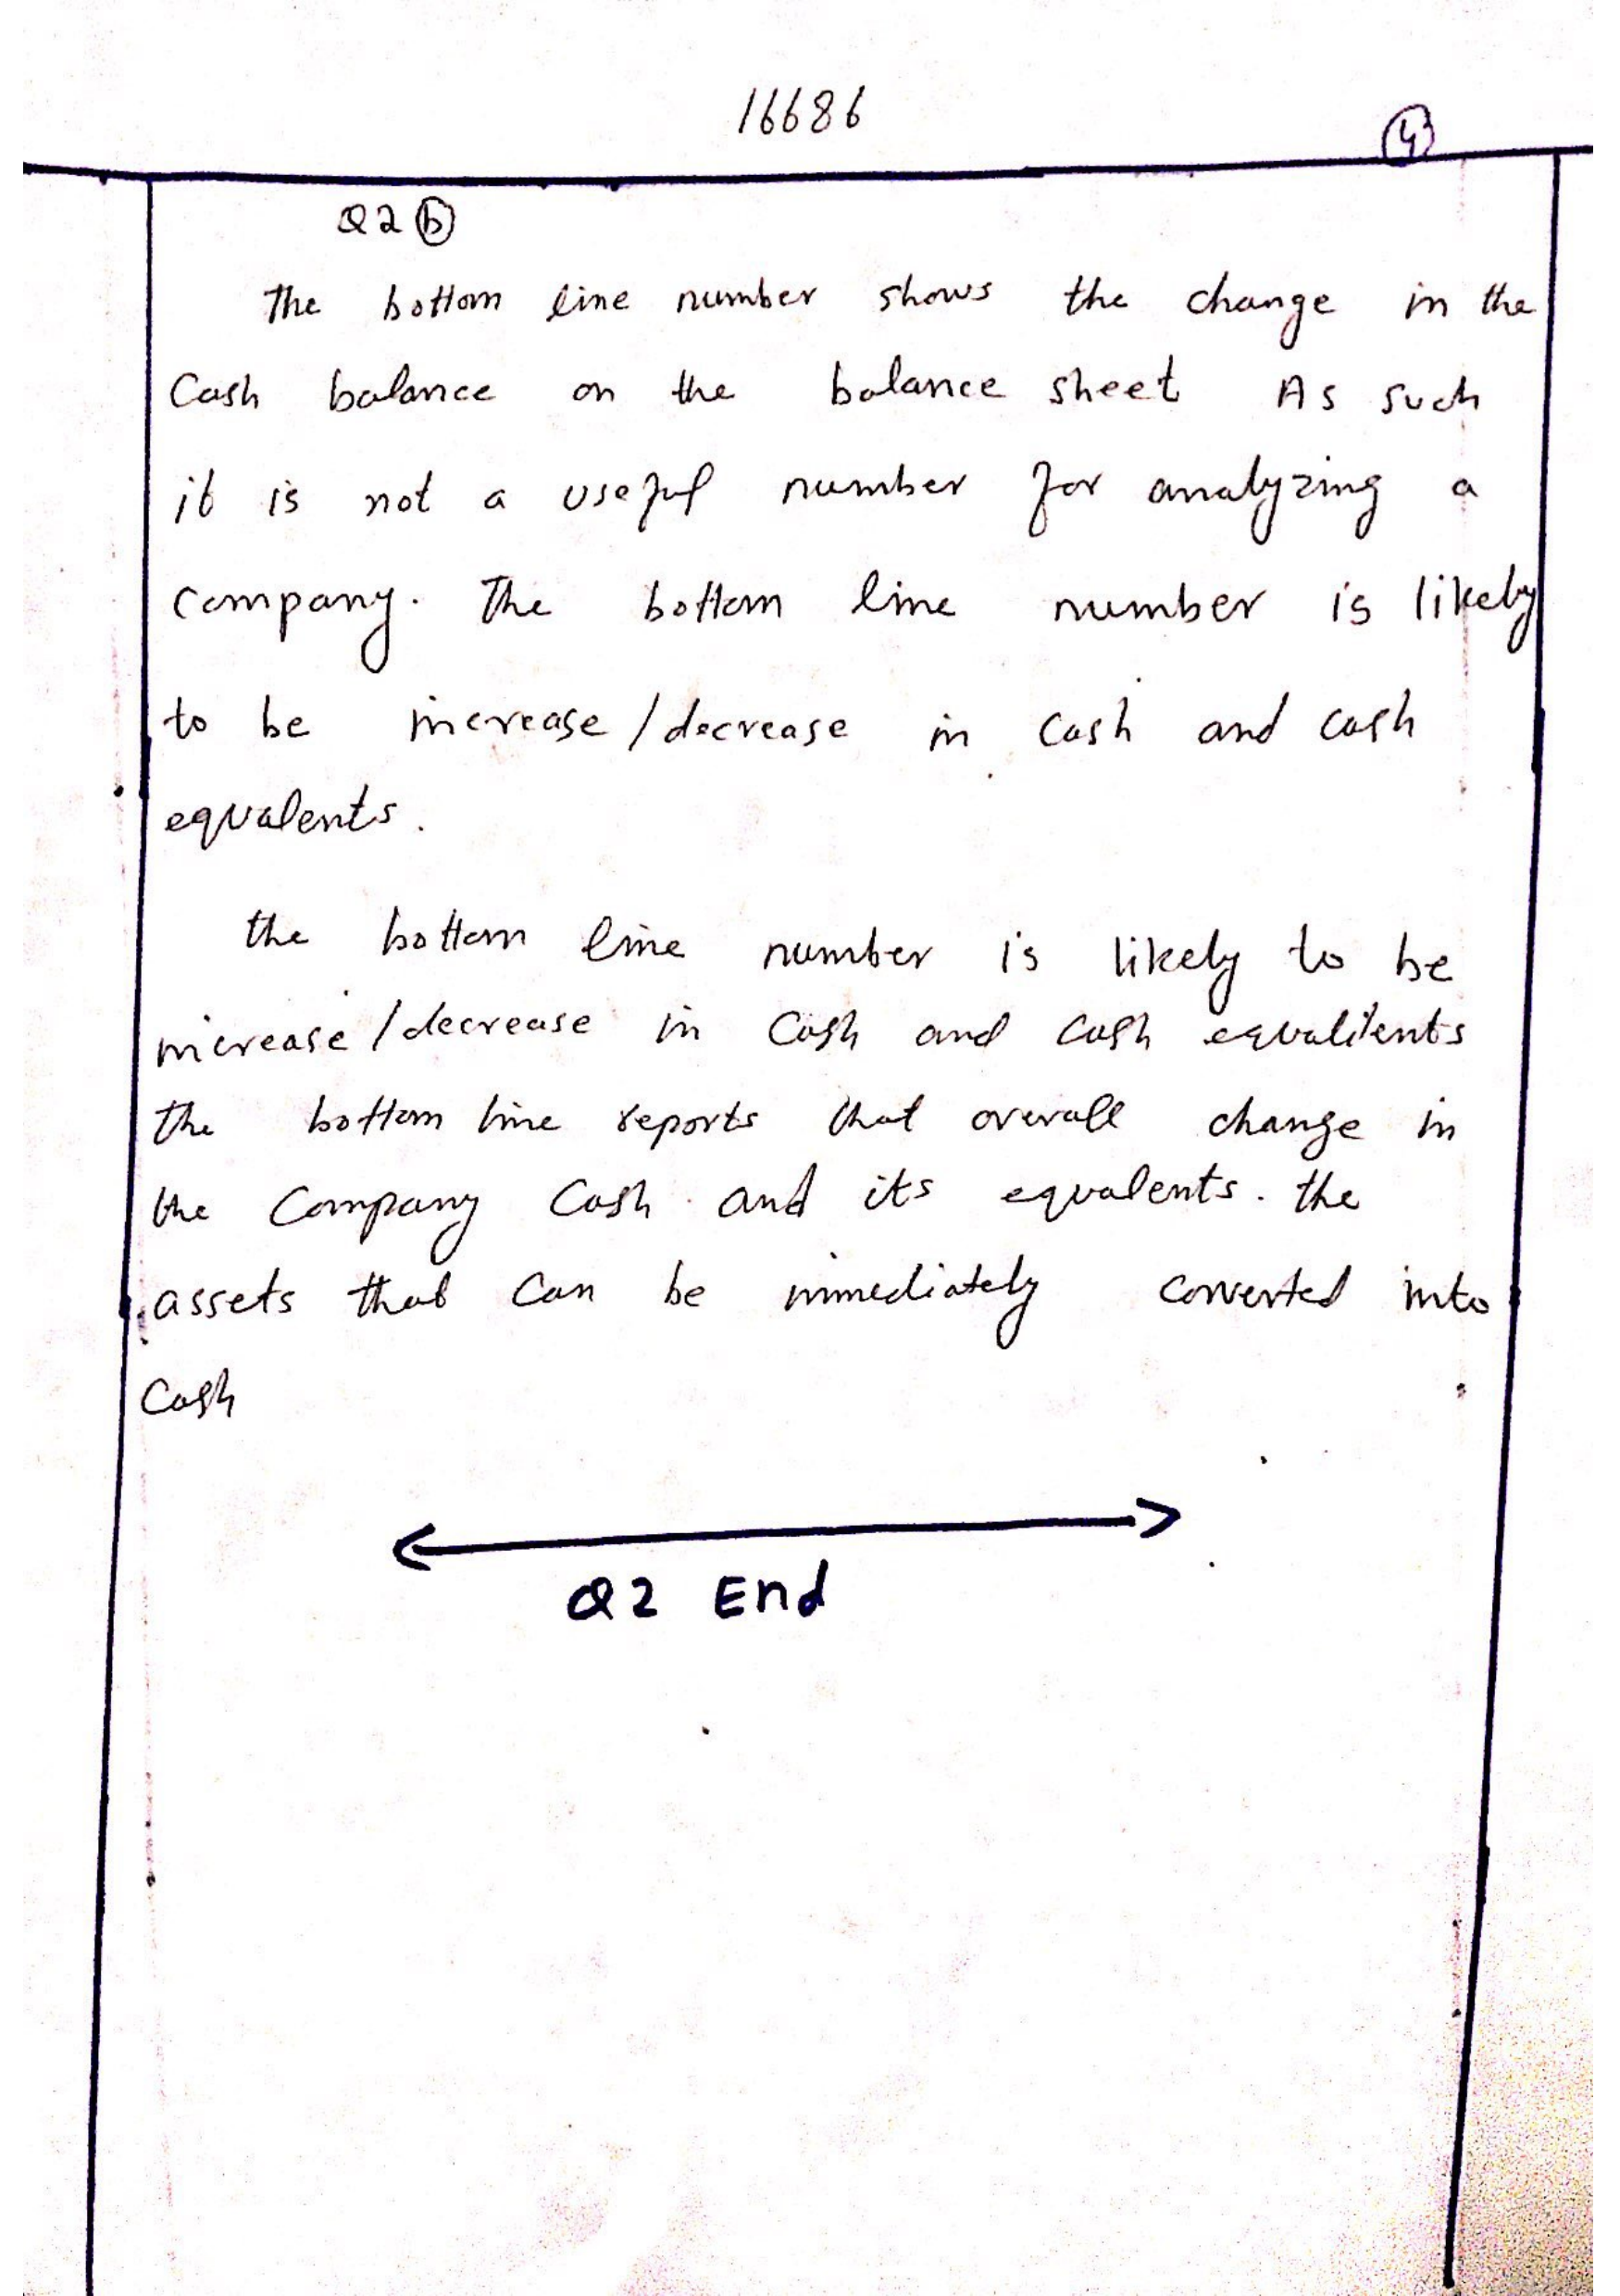 16686
4
Q2 b
The bottom line number shows the change in the
Cash balance on the balance sheet As such
it is not a useful number for analyzing a
company. The bottom line number is likely
to be increase/decrease in cash and cash
equalents.
the bottom line number is likely to be
increase/decrease in Cash and cash equalients
the bottom line reports that overall change in
the Company Cash and its equalents. the
assets that can be immediately converted into
Cash
Q2 End